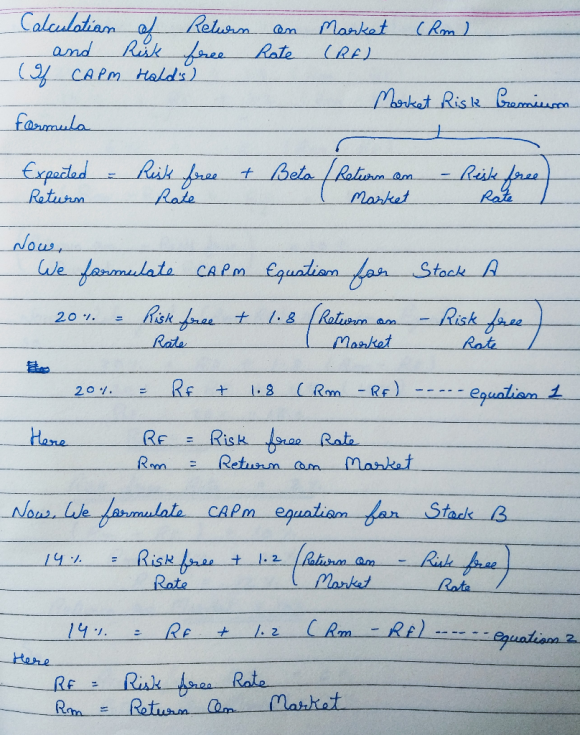 Calculation of Return on Market (Rm)
and Risk free Rate (RF)
(If CAPM Hold's)
Market Risk Premium
Formula
Expected = Risk free + Beta (Return on - Risk free)
Return Rate Market Rate
Now,
We formulate CAPM Equation for Stock A
20% = Risk free + 1.8 (Return on - Risk free)
Rate Market Rate
20% = RF + 1.8 (Rm - RF) ----- equation 1
Here RF = Risk free Rate
Rm = Return on Market
Now, We formulate CAPM equation for Stock B
14% = Risk free + 1.2 (Return on - Risk free)
Rate Market Rate
14% = RF + 1.2 (Rm - RF) ------ equation 2
Here
RF = Risk free Rate
Rm = Return on Market